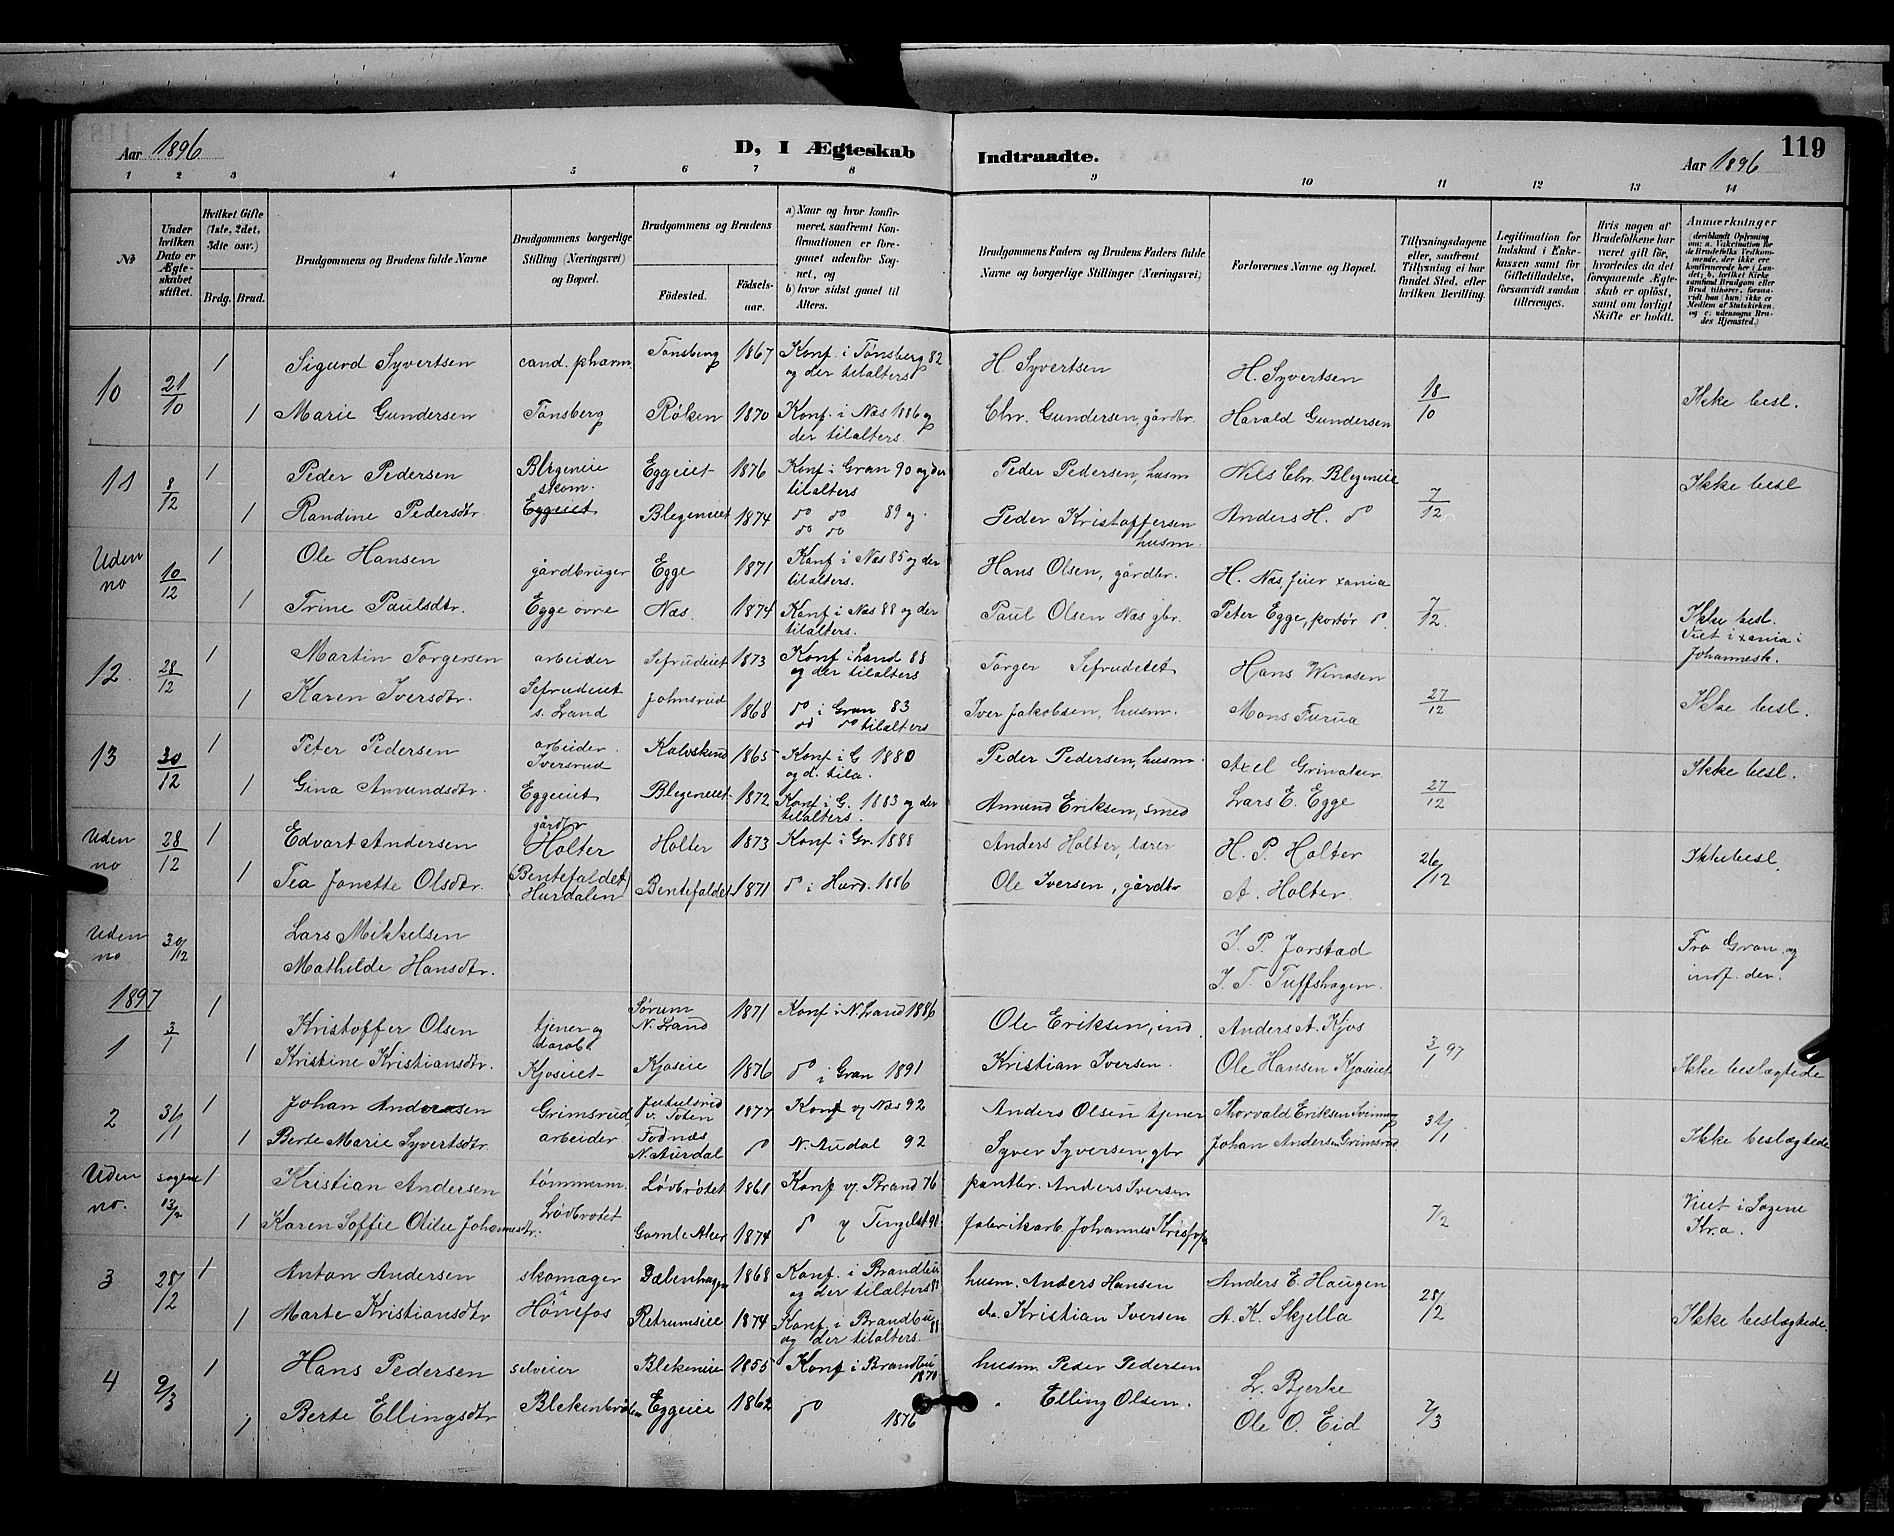 Aar 1896
D, I Ægteskab Indtraadte.
Aar 1896
119
1 2 3 4 5 6 7 8 9 10 11 12 13 14
No
Under hvilken Dato er Ægteskabet stiftet.
Hvilket Gifte (1ste, 2det, 3die osv.)
Brdg. Brud.
Brudgommens og Brudens fulde Navne
Brudgommens borgerlige Stilling (Næringsvei) og Bopæl.
Brudgommens og Brudens
Födested.
Födsels-aar.
a) Naar og hvor konfirmeret, saafremt Konfirmationen er foregaaet udenfor Sognet, og
b) hvor sidst gaaet til Alters.
Brudgommens Faders og Brudens Faders fulde Navne og borgerlige Stillinger (Næringsvei)
Forlovernes Navne og Bopæl.
Tillysningsdagene eller, saafremt Tillysning ei har fundet Sted, efter hvilken Bevilling.
Legitimation for Indskud i Enkekassen samt for Giftetilladelse, forsaavidt saadan tiltrænges.
Hvis nogen af Brudefolkene har været gift för, hvorledes da det foregaaende Ægteskab er oplöst, samt om lovligt Skifte er holdt.
Anmærkninger
(deriblandt Oplysning om: a. Vakcination for de Brudefolks Vedkommende, der ikke ere konfirmerede her i Landet; b. hvilket Kirkesamfund Brudgom eller Brud tilhører, forsaavidt han (hun) ikke er Medlem af Statskirken, og c. udensogns Brudes Hjemsted.)
10 21/10 1 Sigurd Syvertsen cand. pharm Tønsberg 1867 Konf. i Tønsberg 82 og der tilalters H. Syvertsen H. Syvertsen 18/10 Ikke besl.
1 Marie Gundersen Tønsberg Røken 1870 Konf. i Næs 1886 og der tilalters. Chr. Gundersen, gårdbr. Harald Gundersen
11 8/12 1 Peder Pedersen Blegeneie skom. Eggeiet 1876 Konf i Gran 90 og der tilalters Peder Pedersen, husm Nils Chr. Blegeneie 7/12 Ikke besl
1 Randine Pedersdtr. Eggeiet Blegeneiet 1874 do do 89 og do do Peder Kristoffersen husm Anders H. do
Uden no 10/12 1 Ole Hansen gårdbruger Egge 1871 Konf i Næs 85 og der tilalters. Hans Olsen, gårdbr. H. Næs, feier xania
1 Trine Paulsdtr. Egge øvre Næs. 1874 Konf i Næs 88 og der tilalters. Paul Olsen Næs gbr. Peter Egge, portør do. 7/12. Ikke besl. Viet i xania i Johannesk.
12. 28/12 1 Martin Torgersen arbeider Sefrudeiet 1873 Konf i Land 88 og der tilalters Torger Sefrudeiet Hans 27/12 Ikke besl.
1 Karen Iversdtr. Sefrudeiet s. Land Johnsrud 1868 do i Gran 83 od do tilalters Iver Jakobsen, husm. Mons Furua
13 30/12 1 Peter Pedersen arbeider. Iversrud Kalvskind 1865 Konf i G 1880 og d. tila. Peder Pedersen, husm. Axel Grinaker 27/12 Ikke besl.
1 Gina Amundsdtr. Eggeeiet Blegeneiet 1872 Konf i G. 1883 og der tilalters. Amund Eriksen, smed Lars E. Egge
Uden no 28/12 1 Edvart Andersen gårdbr Holter Holter 1873 Konf i Gr. 1888 Anders Holter, lærer H. P. Holter 26/12 Ikke besl.
1 Tea Jonette Olsdtr. (Bentefaldet) Hurdalen Bentefaldet 1871 do i Hurd. 1886 Ole Iversen, gårdbr A. Holter
Uden no 30/12 Lars Mikkelsen J. P. Jorstad Fra Gran og indf. der.
Mathilde Hansdtr. J. T. Tuffshagen.
1897
1 3/1 1 Kristoffer Olsen tjener og Sørum N. Land 1871 Konf i N. Land 1886 Ole Eriksen, ind Anders A. Kjos 3/1 97
1 Kristine Kristiansdtr. Kjoseiet Kjoseie 1876 do i Gran 1891 Kristian Iversen. Ole Hansen Kjoseiet Ikke beslægtede
2 31/1 1 Johan Andersen Grimsrud, Jutulsrud v. Toten 1877 Konf v/ Næs 92 Anders Olsen tjener Thorvald Eriksen 31/1.
1 Berte Marie Syvertsdtr arbeider Fodnæs N. Aurdal do N. Audal 92 Syver Syversen, gbr Johan Andersen Grimsrud Ikke beslægtede
Uden no. sogne 13/2 1 Kristian Andersen tømmerm. Lødbrøtet 1861 Konf v/ Brand 76 pantbr. Anders Iversen 7/2 Viet i Sagene Kr.a.
1 Karen Soffie Otilie Johannesdtr. Lødbrotet Gamle Aker 1874 do Tingelst 91 fabrikarb. Johannes
3 28/12 1 Anton Andersen skomager i Dæbenhagen 1868 Konf. i Brandbu og der tilalters 83 husm. Anders Hansen Anders E. Haugen 28/2
1 Marte Kristiansdtr Hønefos Retrumseie 1874 Konf i Brandbu 88 og der tilalters. do. Kristian Iversen A. K. Skjella Ikke beslægtede.
4 9/3 1 Hans Pedersen selveier Blekeneie 1855 Konf i Brandbu 1870 husm Peder Pedersen L. Bjerke 7/3
1 Berte Ellingsdtr Eggeeie 1862 do 1876 " Elling Olsen. Ole O. Eid